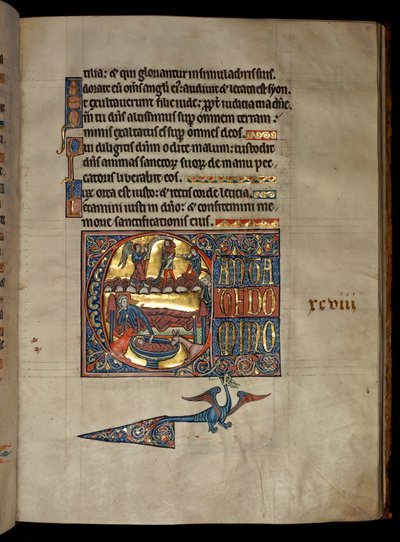 tilia: & qui gloriantur in simulachris suis.
Adorate eū om̄s angli ei᷒: audiuit & letata est syon.
Et exultauerunt filie iude: ꝓpt̄ iudicia tua dn̄e.
Qm̄ tu dn̄s altissimus sup̄ omnem terram:
nimis exaltatus es sup̄ omnes deos.
Qui diligitis dn̄m odite malum: custodit
dn̄s animas sanctoꝝ suoꝝ de manu pec
catoris liberabit eos.
Lux orta est iusto: & rectis corde leticia.
Letamini iusti in dn̄o: & confitemini me
morie sanctificationis eius.
CANTA
TE DO
MINO
xcviii